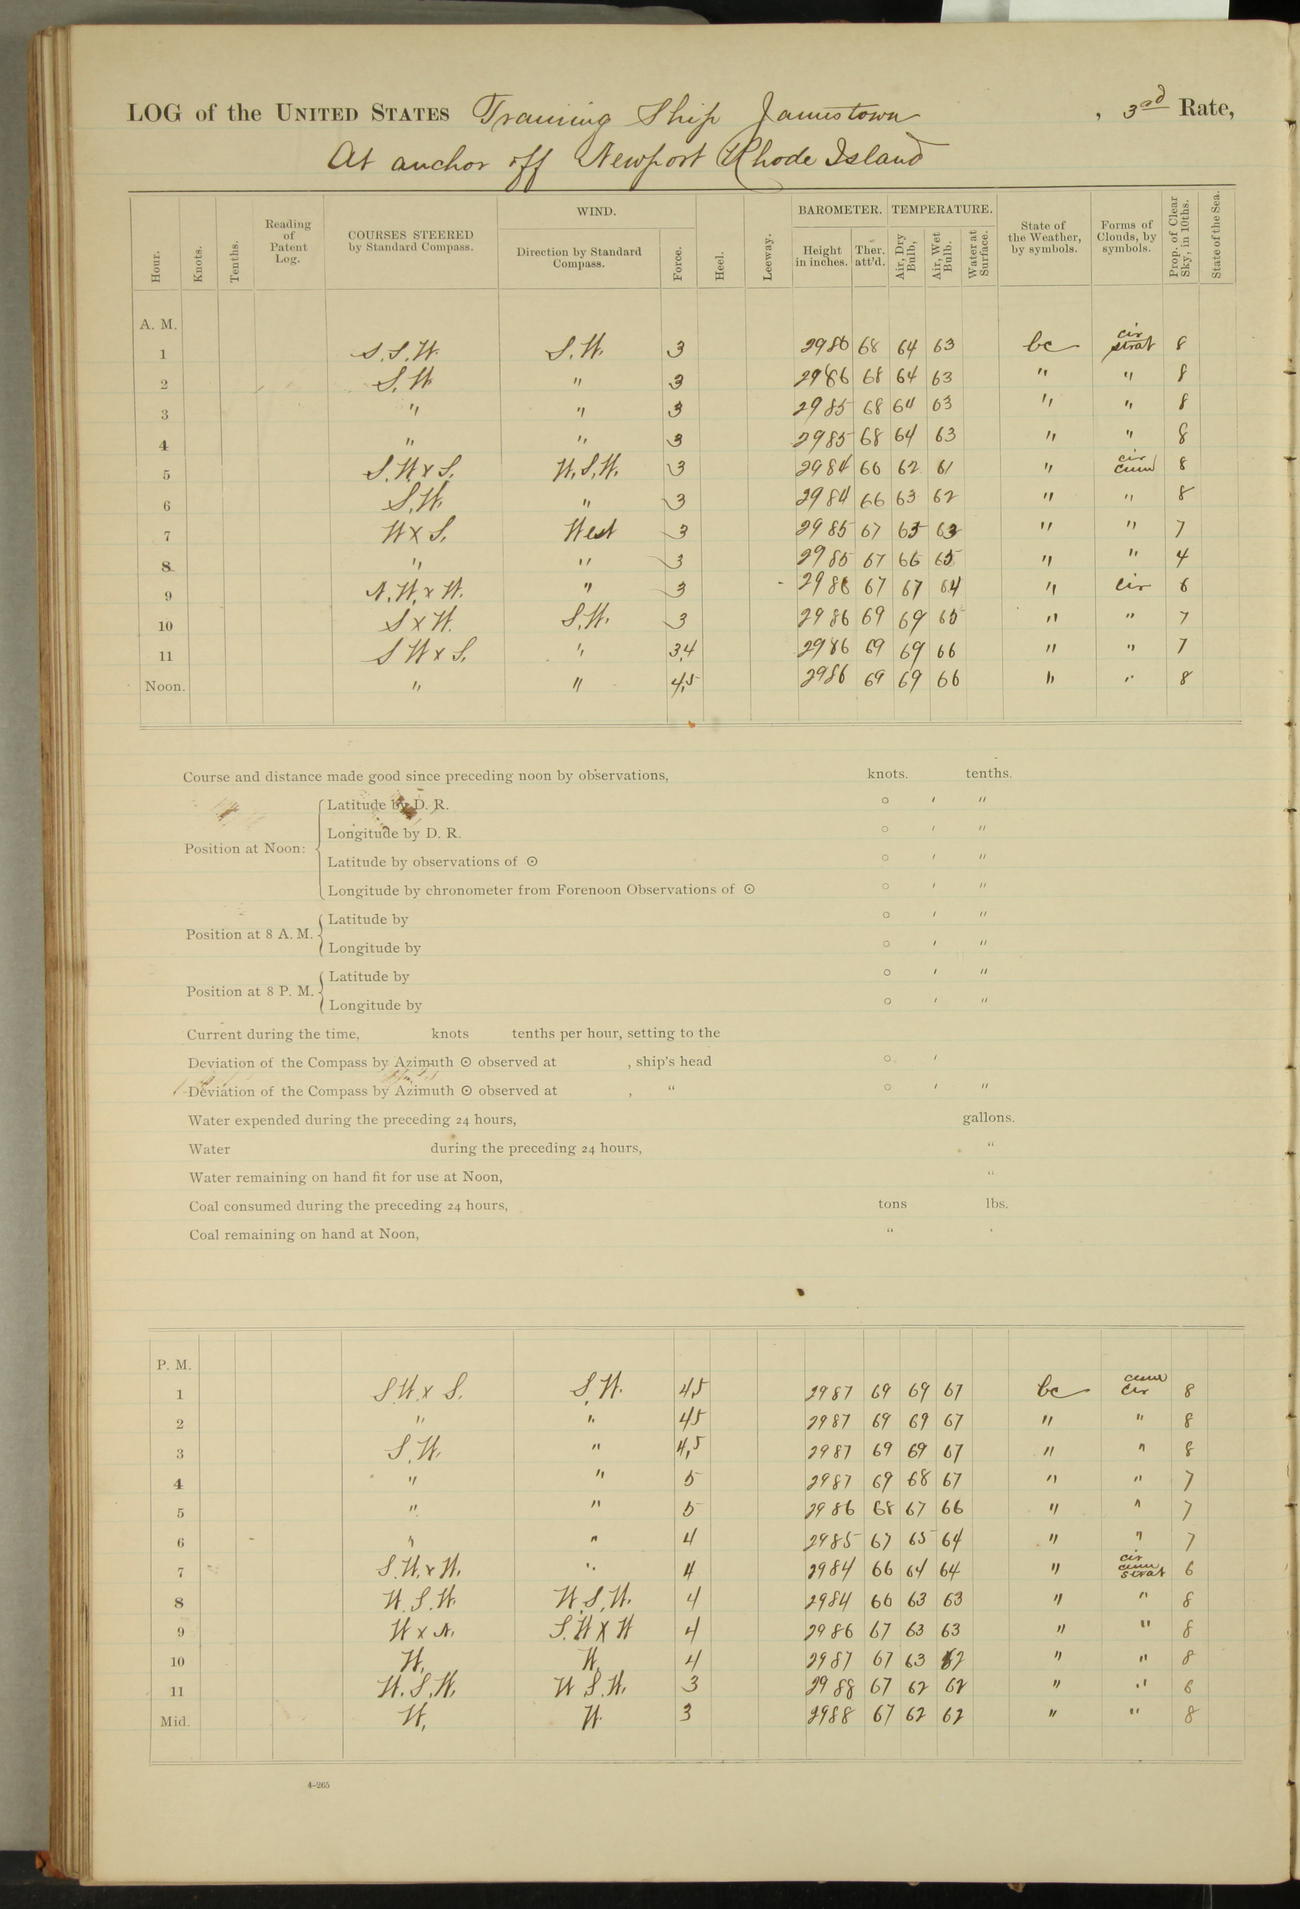 LOG of the UNITED STATES Training Ship Jamestown , 3rd Rate,
At anchor off Newport Rhode Island
Hour. Knots. Tenths. Reading of Patent Log. COURSES STEERED by Standard Compass. WIND. Direction by Standard Compass. Force. Heel. Leeway. BAROMETER. Height in inches. Ther. att'd. TEMPERATURE. Air, Dry Bulb, Air, Wet Bulb. Water at Surface. State of the Weather, by symbols. Forms of Clouds, by symbols. Prop. of Clear Sky, in 10ths. State of the Sea.
A. M.
1 S.S.W. S.W. 3 2986 68 64 63 bc cir strat 8
2 S.W. " 3 2986 68 64 63 " " 8
3 " " 3 2985 68 64 63 " " 8
4 " " 3 2985 68 64 63 " " 8
5 S.W x S. W.S.W. 3 2984 66 62 61 " cir cum 8
6 S.W. " 3 2984 66 63 62 " " 8
7 W x S. West 3 2985 67 65 63 " " 7
8 " " 3 2985 67 66 65 " " 4
9 N.W. x W. " 3 2986 67 67 64 " cir 6
10 S x W. S.W. 3 2986 69 69 65 " " 7
11 S W x S. " 3,4 2986 69 69 66 " " 7
Noon. " " 4,5 2986 69 69 66 " " 8
Course and distance made good since preceding noon by observations, knots. tenths.
Position at Noon: Latitude by D. R. ° ′ ″
Longitude by D. R. ° ′ ″
Latitude by observations of ☉ ° ′ ″
Longitude by chronometer from Forenoon Observations of ☉ ° ′ ″
Position at 8 A. M. Latitude by ° ′ ″
Longitude by ° ′ ″
Position at 8 P. M. Latitude by ° ′ ″
Longitude by ° ′ ″
Current during the time, knots tenths per hour, setting to the
Deviation of the Compass by Azimuth ☉ observed at , ship's head ° ′
Deviation of the Compass by Azimuth ☉ observed at , " ° ′ ″
Water expended during the preceding 24 hours, gallons.
Water during the preceding 24 hours, "
Water remaining on hand fit for use at Noon, "
Coal consumed during the preceding 24 hours, tons lbs.
Coal remaining on hand at Noon, "
P. M.
1 S W. x S. S.W. 4,5 2987 69 69 67 bc cum cir 8
2 " " 4,5 2987 69 69 67 " " 8
3 S.W. " 4,5 2987 69 69 67 " " 8
4 " " 5 2987 69 68 67 " " 7
5 " " 5 2986 68 67 66 " " 7
6 " " 4 2985 67 65 64 " " 7
7 S.W. x W. " 4 2984 66 64 64 " cir cum strat 6
8 W.S.W. W.S.W. 4 2984 66 63 63 " " 8
9 W x N. S.W x W 4 2986 67 63 63 " " 8
10 W. W. 4 2987 67 63 62 " " 8
11 W.S.W. W S.W. 3 2988 67 62 62 " " 6
Mid. W. W. 3 2988 67 62 62 " " 8
4-265